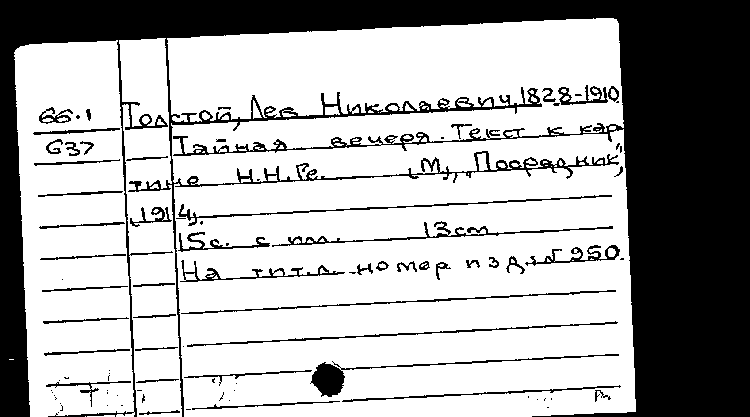 66.1 Толстой, Лев Николаевич, 1828-1910
G37 Тайная вечеря. Текст к кар-
тине Н.Н.Ге. [М], „Посредник",
[1914].
15с. с илл. 13cm.
На тит.л. номер изд.: № 250.